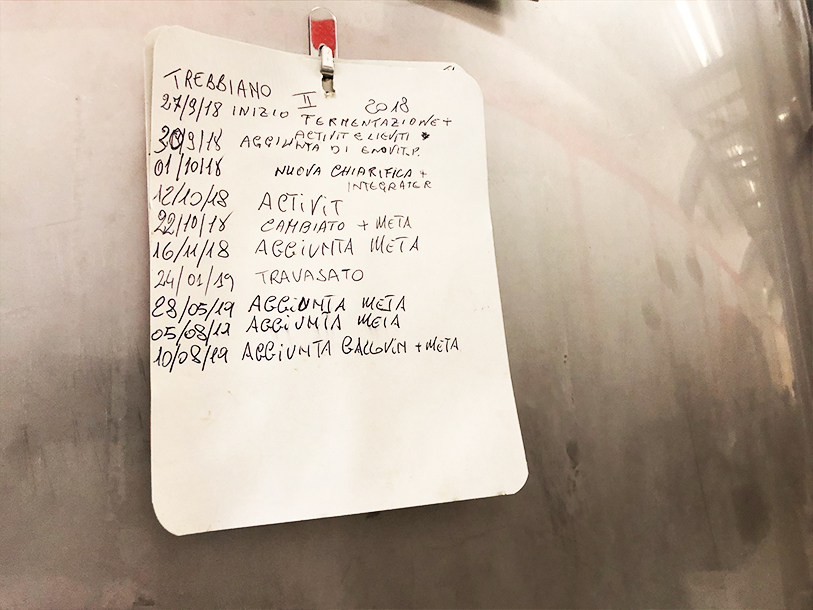 TREBBIANO II 2018
27/9/18 INIZIO FERMENTAZIONE +
ACTIVIT E LIEVITI
30/9/18 AGGIUNTA DI ENOVIT.P.
01/10/18 NUOVA CHIARIFICA +
INTEGRATER
12/10/18 ACTIVIT
22/10/18 CAMBIATO + META
16/11/18 AGGIUNTA META
24/01/19 TRAVASATO
28/05/19 AGGIUNTA META
05/08/19 AGGIUNTA META
10/08/19 AGGIUNTA GALLOVIN + META